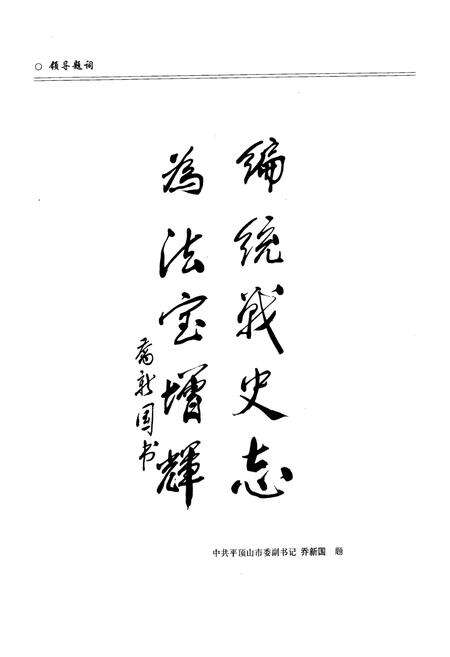 ○ 领导题词
编统战史志
为法宝增辉
乔新国书
中共平顶山市委副书记 乔新国 题